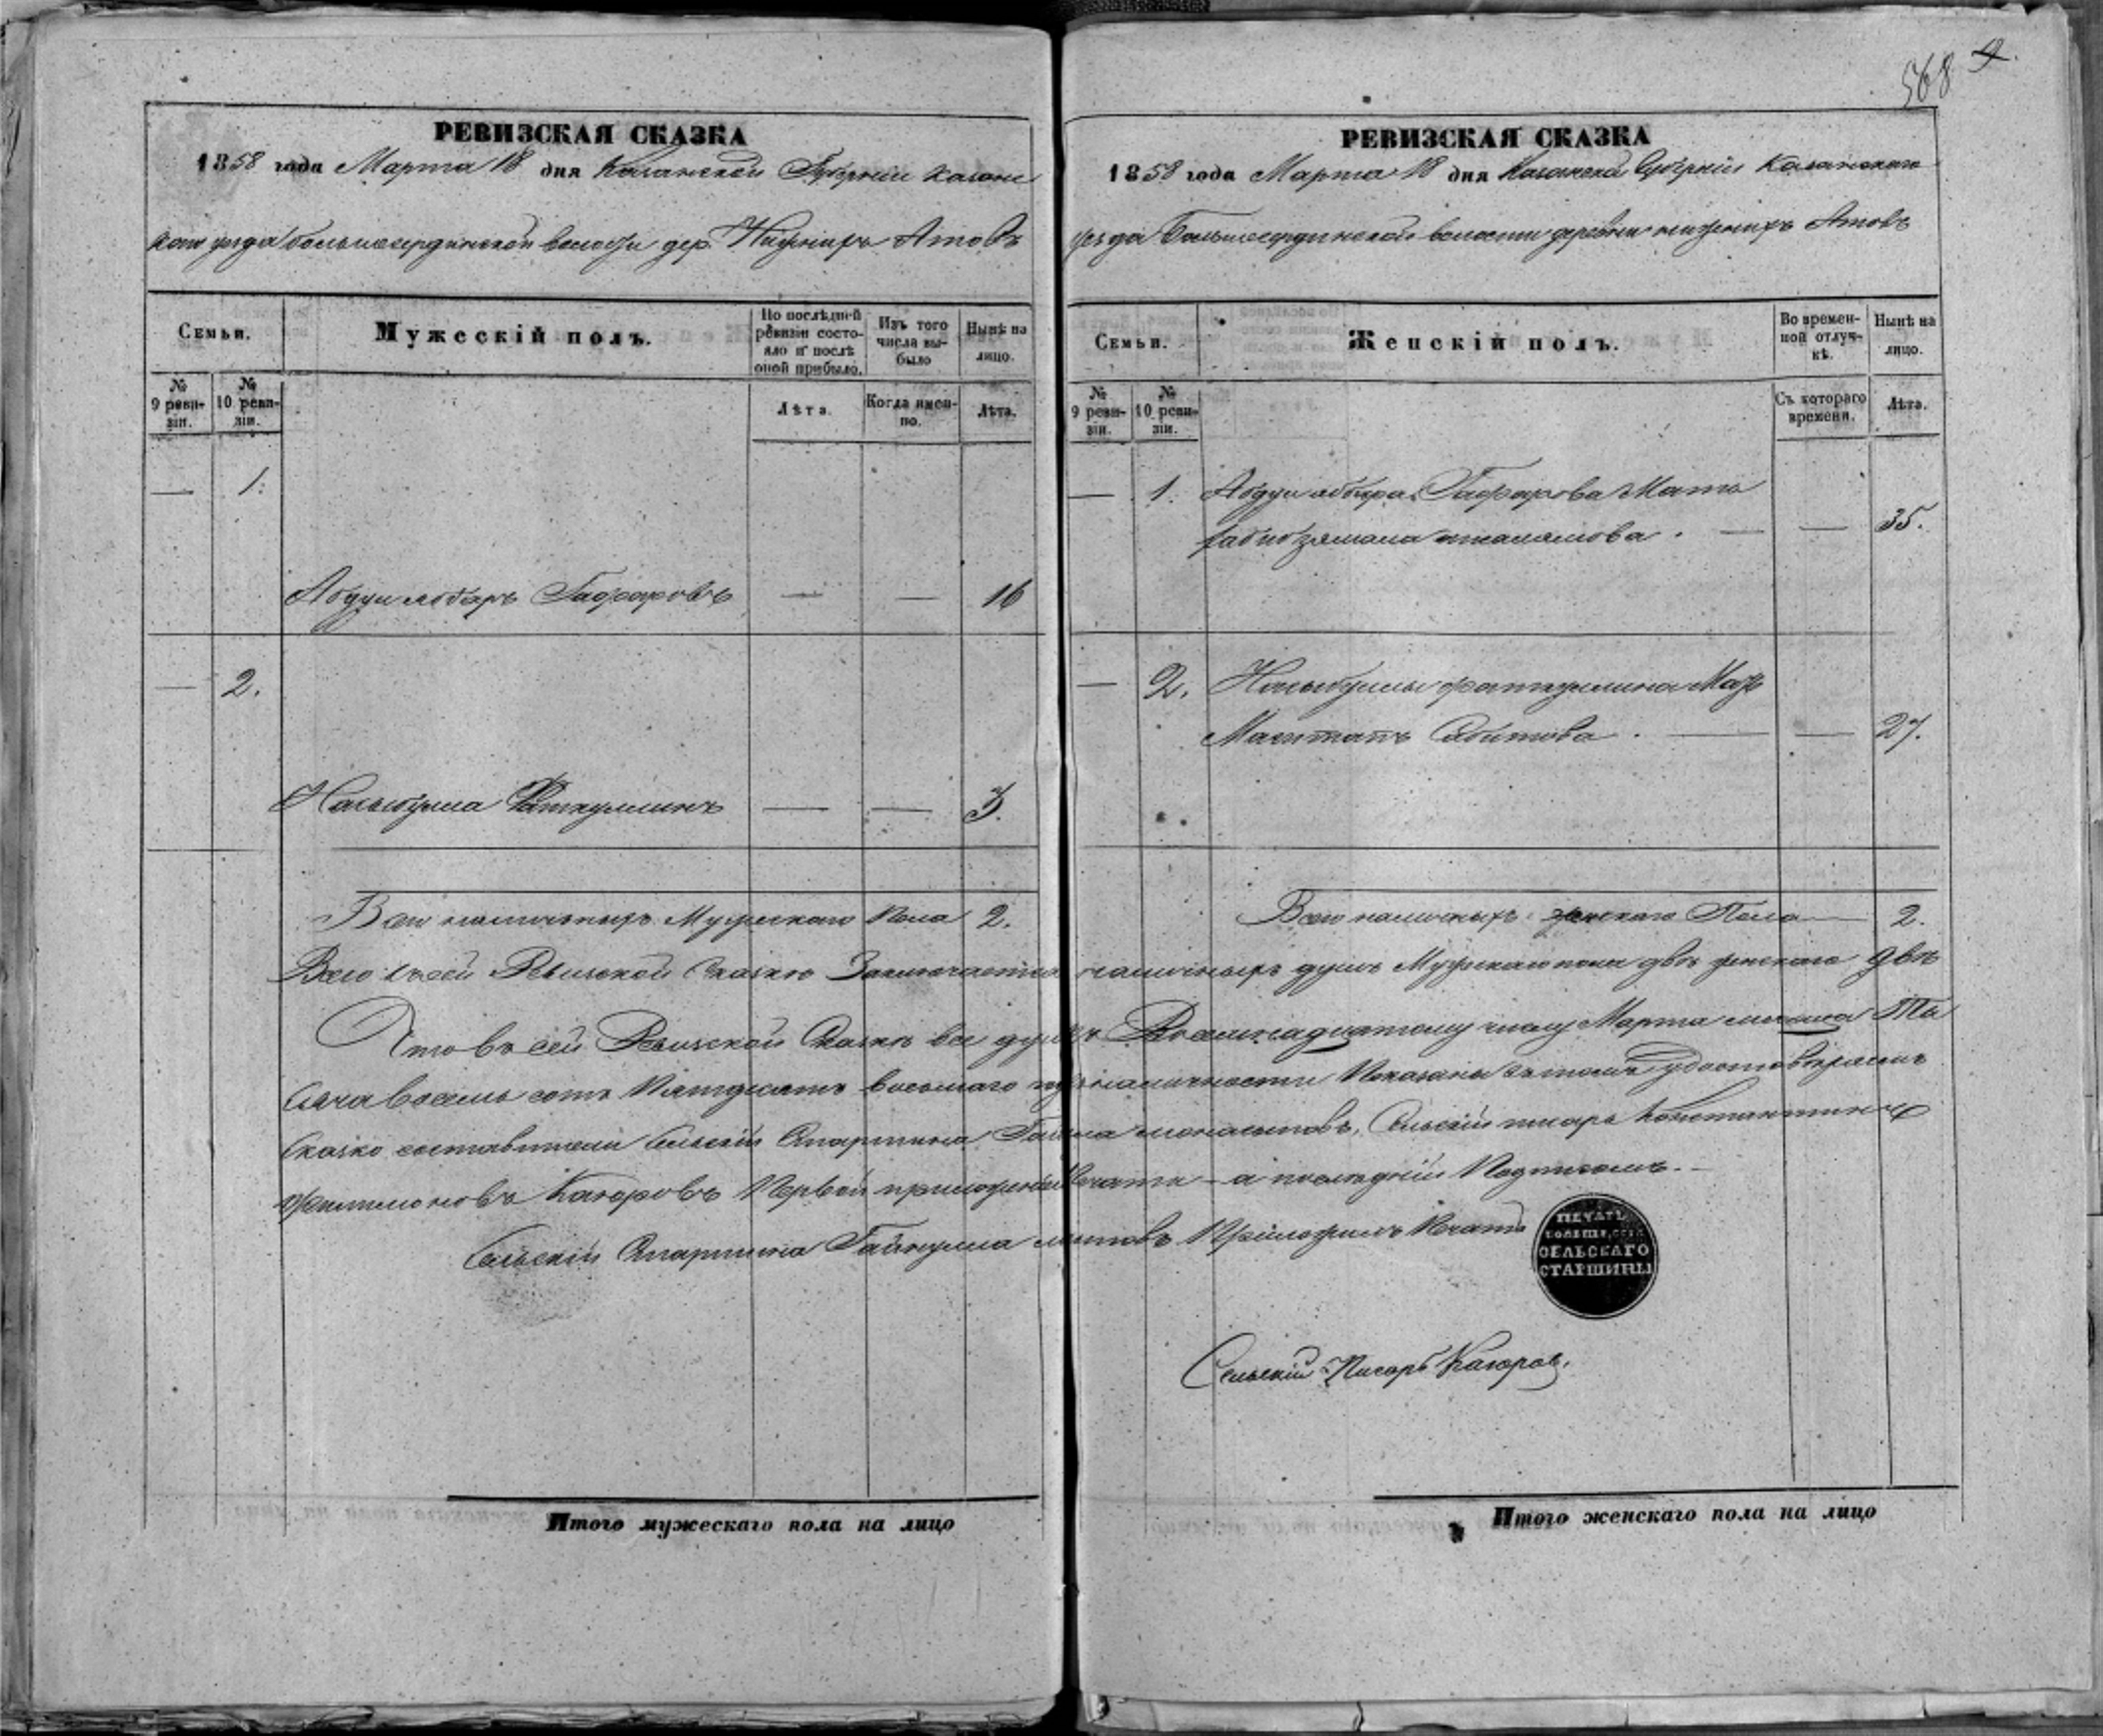 РЕВИЗСКАЯ СКАЗКА
1858 года Марта 18 дня Казанской Губерніи Казанс
каго уезда большесердинской волости дер. Нижнихъ Атовъ
Семьи.
Мужескій полъ.
По послѣдней ревизіи состояло и послѣ оной прибыло.
Изъ того числа выбыло
Нынѣ на лицо.
№ 9 ревизіи.
№ 10 ревизіи.
Лѣта.
Когда именно.
Лѣта.
— 1.
Абдулжабаръ Гафаровъ — — 16
— 2.
Фаткуллинъ — — 3.
Всего наличныхъ Мужескаго Пола 2.
Итого мужескаго пола на лицо
568
РЕВИЗСКАЯ СКАЗКА
1858 года Марта 18 дня Казанской Губерніи Казанскаго
уезда Большесердинской волости деревни нижнихъ Атовъ
Семьи.
Женскій полъ.
Во временной отлучкѣ.
Нынѣ на лицо.
№ 9 ревизіи.
№ 10 ревизіи.
Съ котораго времени.
Лѣта.
— 1. Гафарова Мать
— — 35.
— 2. фаткуллина Мать
Сабитова. — — 27.
Всего наличныхъ женскаго Пола — 2.
Всего въ сей Ревизской Сказке Заключается наличныхъ душъ Мужскаго пола две женскаго две
Что въ сей Ревизской Сказке все души къ Восемнадцатому числу Марта месяца Ты
сяча восемь сотъ Пятдесятъ восьмаго года наличности Показаны въ томъ удостоверяемъ
Сказко составители Сельскій Старшина Сельскій писарь Константинъ
Филимоновъ Кагоровъ Первой приложеніемъ Печати – а последній Подписомъ. –
Сельскій Старшина Гайнулла Приложилъ Печать
ПЕЧАТЬ
СЕЛЬСКАГО
СТАРШИНЫ
Сельскій Писарь Кагоровъ.
Итого женскаго пола на лицо